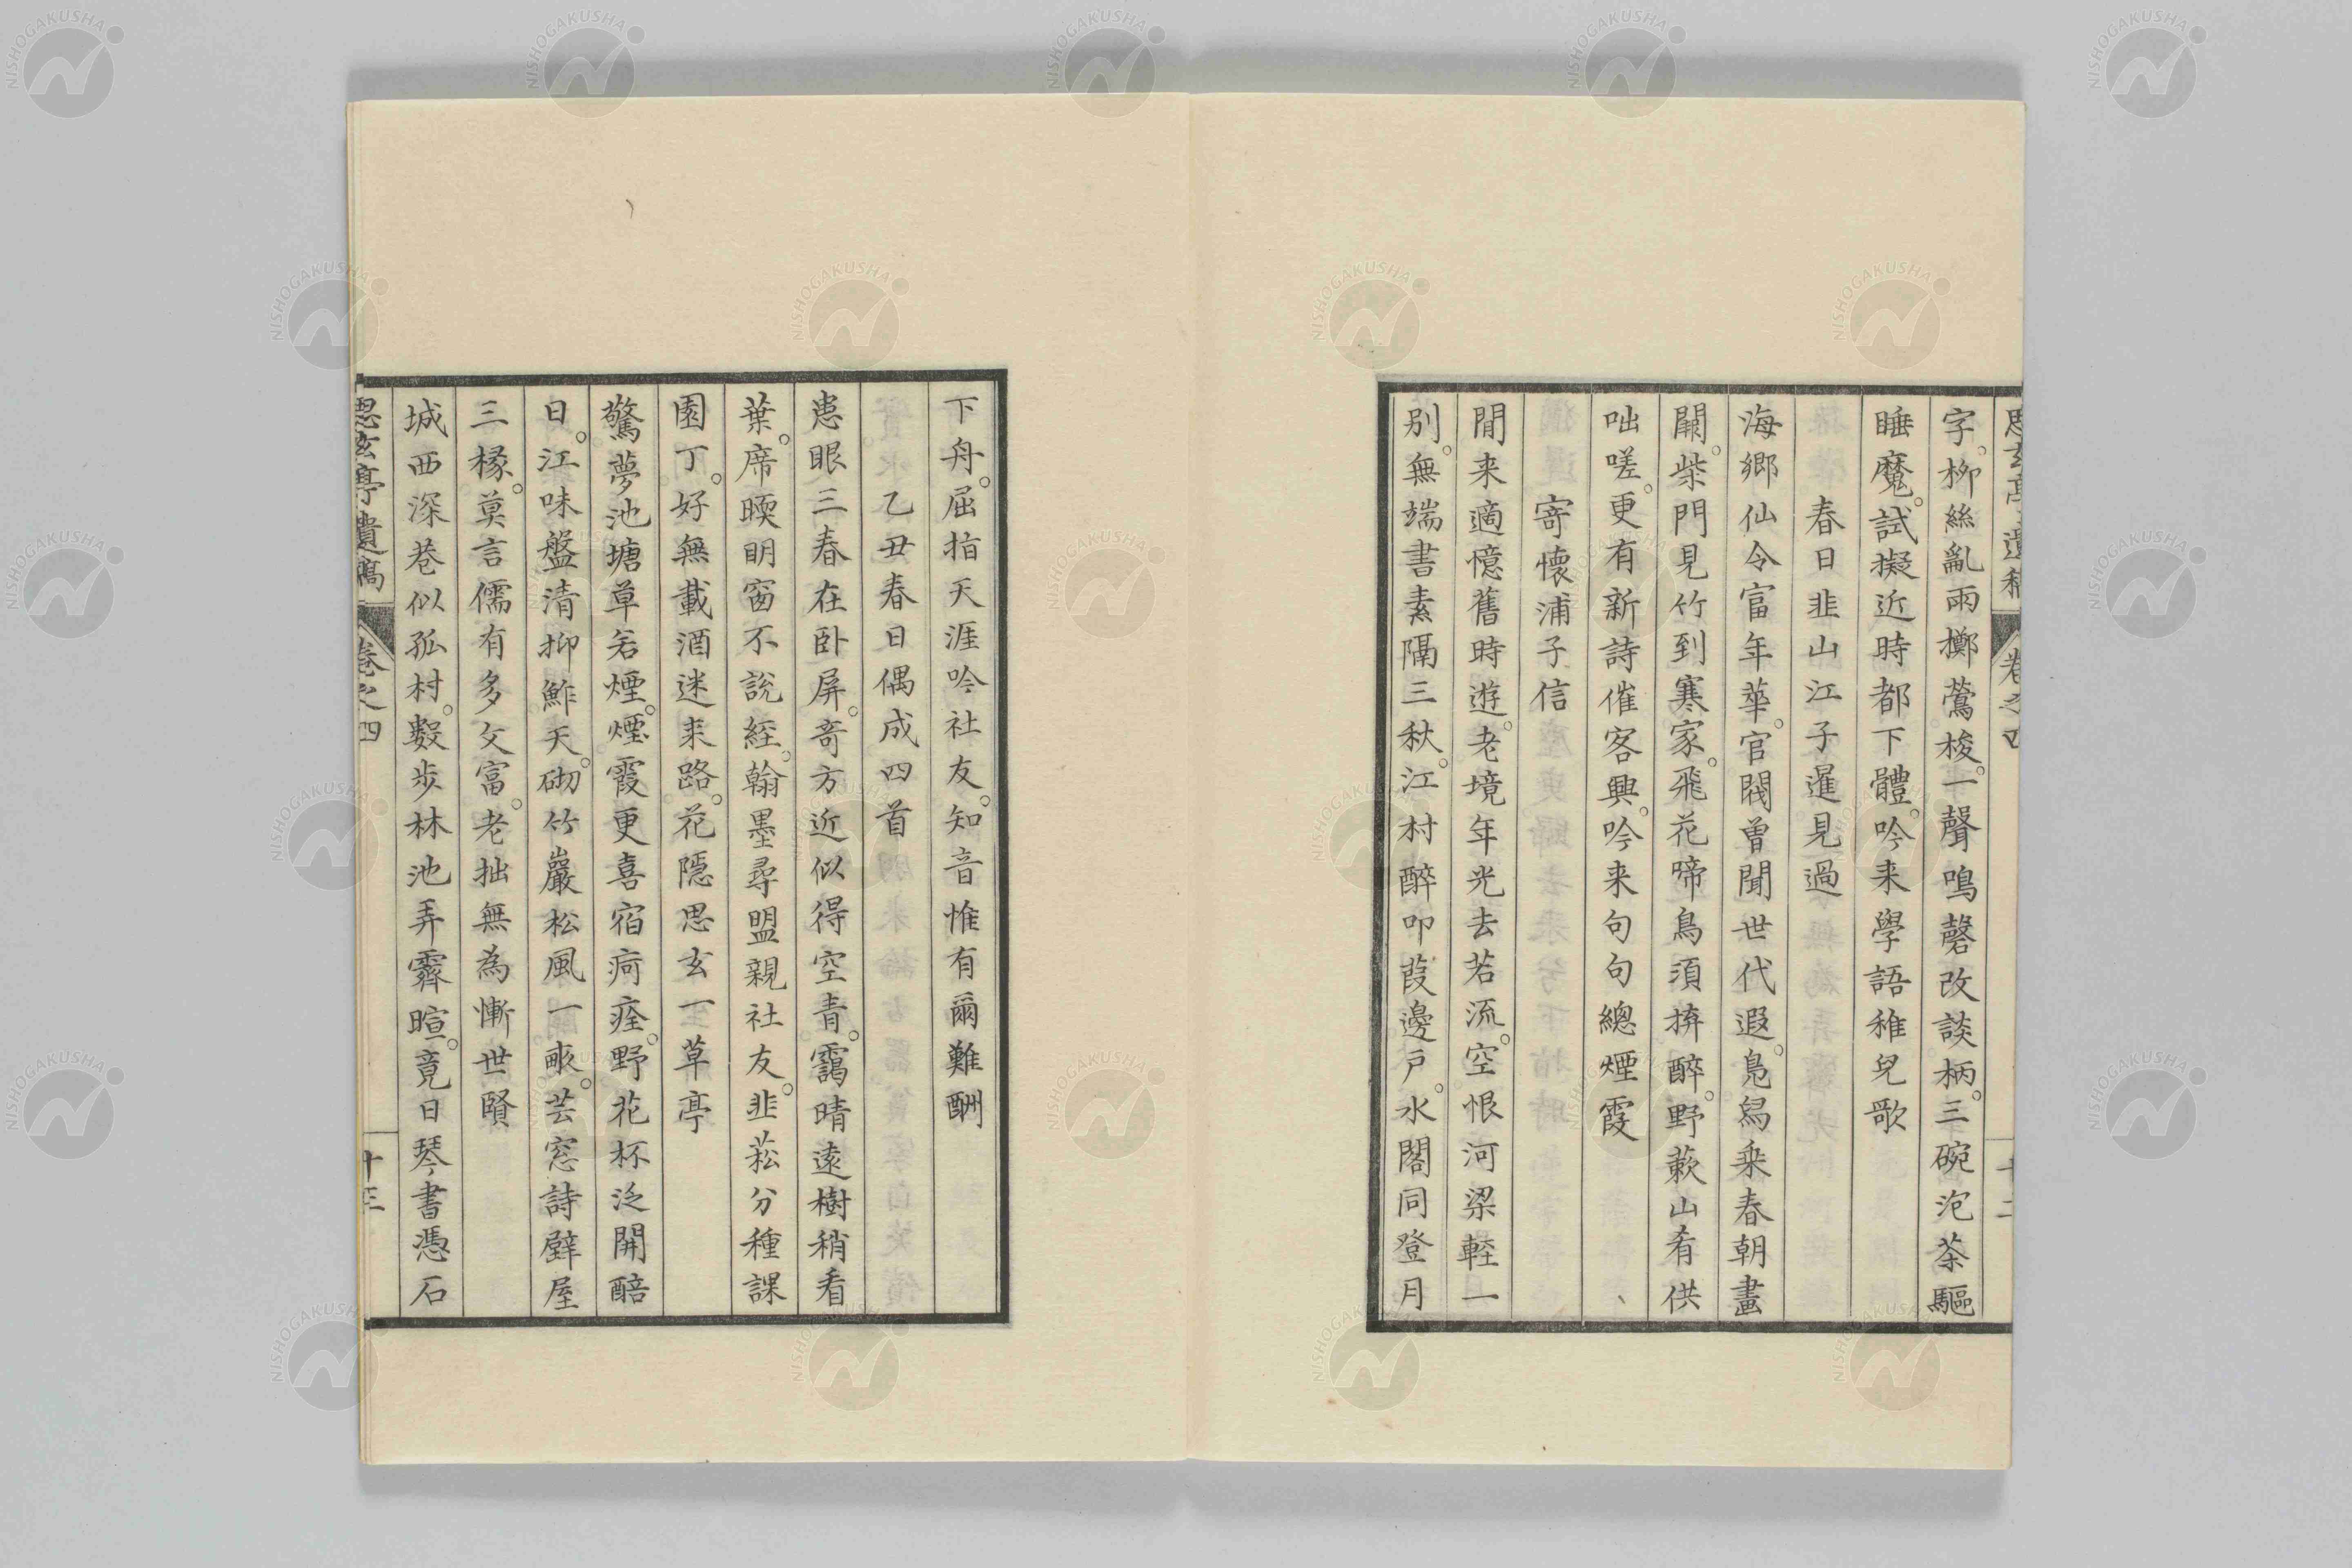 思玄亭遺稿 卷之四 十二
字。柳絲亂雨擲鶯梭。一聲鳴磬改談柄。三碗泡茶驅
睡魔。試擬近時都下體。吟来學語稚兒歌
春日韭山江子暹見過
海鄉仙令富年華。官閥曾聞世代遐。鳧舄乗春朝畫
闕。柴門見竹到寒家。飛花啼鳥須拚醉。野蔌山肴供
咄嗟。更有新詩催客興。吟来句句總煙霞
寄懷浦子信
閒来適憶舊時遊。老境年光去若流。空恨河梁輕一
別。無端書素隔三秋。江村醉叩葭邊戶。水閣同登月
下舟。屈指天涯吟社友。知音惟有爾難酬
乙丑春日偶成四首
患眼三春在卧屏。奇方近似得空青。靄晴遠樹稍看
葉。席暖明窗不說經。翰墨尋盟親社友。韭菘分種課
園丁。好無載酒迷来路。花隱思玄一草亭
驚夢池塘草若煙。煙霞更喜宿痾痊。野花杯泛開醅
日。江味盤清抑鮓天。砌竹巖松風一畝。芸窓詩壁屋
三椽。莫言儒有多文富。老拙無為慚世賢
城西深巷似孤村。數步林池弄霽暄。竟日琴書憑石
思玄亭遺稿 卷之四 十三